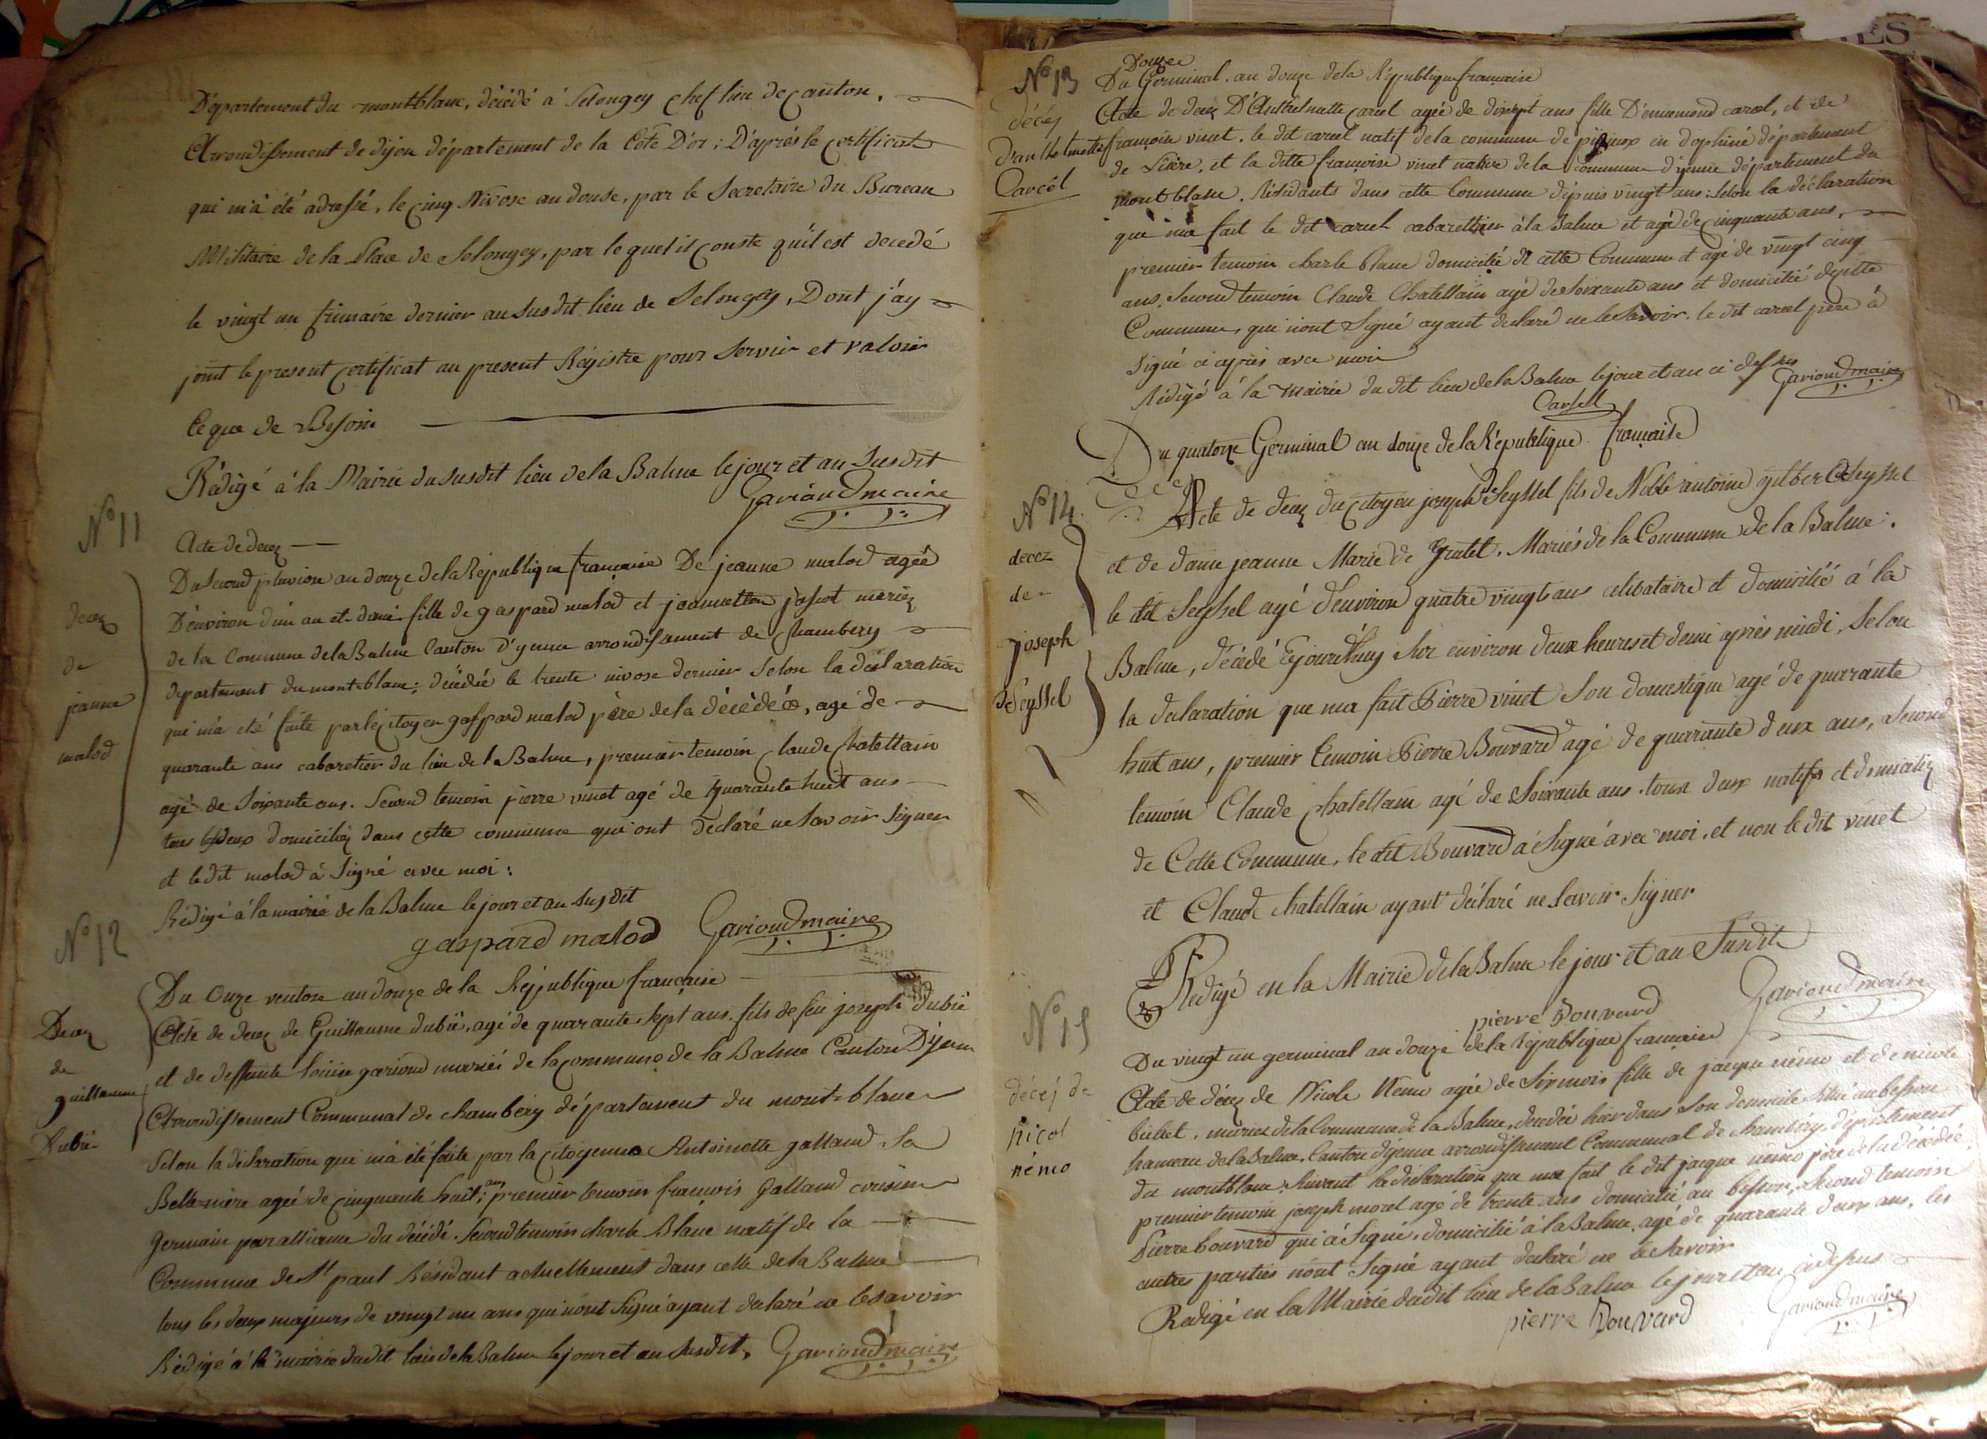 Département du montblanc, décédé à Selongey chef lieu de canton.
Arrondissement de dijon département de la Côte D'or; D'après le certificat
qui m'a été adressé, le cinq Nivose an douse, par le Secretaire du Bureau
Militaire de la Place de Selongey, par lequel il conste qu'il est decedé
le vingt un frimaire dernier au susdit lieu de Selongey, Dont j'ay
joint le present certificat au present Régistre pour servir et valoir
ce que de Besoin
Rédigé à la Mairie du susdit lieu de la Balme le jour et an susdit
Gavioud maire
N° 11
Acte de decez
Du second pluviose an douze de la République française De jeanne malod agée
D'énviron d'un an et demi fille de gaspard malod et jeannette mariez
de la Commune de la Balme Canton d'yenne arrondissement de Chambery
departement du montblanc; décédée le trente nivose dernier selon la déclaration
qui m'a eté faite par le citoyen gaspard malod père de la décédée, agé de
quarante ans cabaretier du lieu de la Balme, premier temoin Claude Chatellain
agé de soixante ans. Second temoin pierre vinet agé de quarante huit ans
tous les deux domiciliez dans cette commune qui ont déclaré ne savoir signer
et le dit malod à signé avec moi:
Rédigé à la mairie de la Balme le jour et an susdit
gaspard malod Gavioud maire
decez
de
jeanne
malod
N° 12
Du Onze ventose an douze de la République française
Acte de decez de Guillaume dubié, agé de quarante sept ans. fils de feu joseph dubié
et de deffunte louise gavioud mariés de la commune de la Balme Canton D'yenne
Arrondissement Communal de chambéry département du mont-blanc
Selon la déclaration qui m'a été faite par la citoyenne Antoinette galland sa
Belle-mère agée de cinquante huit ans; premier temoin françois galland cousin
germain par alliance du décédé. Second temoin charle Blanc natif de la
Commune de St paul Résidant actuellement dans celle de la Balme
tous les deux majeurs de vingt un ans qui n'ont signé ayant declaré ne le savoir
Rédigé à la mairie dudit lieu de la Balme le jour et an susdit. Gavioud maire
Decez
de
guillaume
Dubié
N° 13
décéz
D'anthelmette
Carcel
Douze
Du Germinal. an douze de la République française
Acte de decez D'Anthelmette carcel agée de ans fille D'emmond carcel, et de
françoise vinet. le dit carcel natif de la commune de en dophiné département
de L'isère, et la ditte françoise vinet native de la Commune d'yenne département du
mont blanc. Résidants dans cette Commune depuis vingt ans: selon la déclaration
que m'a fait le dit carcel cabarettier à la Balme et agé de cinquante ans.
premier temoin charle blanc domicilié de cette Commune et agé de vingt cinq
ans. Second temoin Claude Chatellain agé de soixante ans et domicilié de cette
Commune, qui n'ont signé ayant declaré ne le savoir. le dit carcel père à
signé ci après avec moi
Rédigé à la mairie du dit lieu de la Balme le jour et an ci dessus
Carcel Gavioud maire
N° 14
decez
de
joseph
deSeyssel
Du quatorze Germinal an douze de la République française
Acte de decez du citoyen joseph deSeyssel fils de Noble antoine gilbert deSeyssel
et de dame jeanne Marie de Grutel. Mariés de la Commune de la Balme.
le dit Seyssel agé d'environ quatre vingt ans celibataire et domicilié à la
Balme, décédé sur environ deux heures et demi après midi, selon
la declaration que ma fait Pierre vinet son domestique agé de quarante
huit ans, premier temoin Pierre Bouvard agé de quarante deux ans, second
temoin Claude Chatellain agé de soixante ans. tous deux natifs et domiciliez
de Cette Commune. le dit Bouvard à signé avec moi. et non le dit vinet
et Claude chatellain ayant déclaré ne savoir signer
Redigé en la Mairie de la Balme le jour et an susdit
pierre Bouvard Gavioud maire
N° 15
décéj de
nicol
némo
Du vingt un germinal an douze de la République française
Acte de décez de Nicole Némo agée de six mois fille de jacque némo et de nicole
mariez de la Commune de la Balme, decedée hier dans son domicile situé au besson
hameau de la Balme. Canton d'yenne arrondissement Communal de chambéry, département
du montblanc. suivant la déclaration que m'a fait le dit jacque némo père de la décédée
premier temoin joseph morel agé de trente ans domicilié au besson, second temoin
Pierre bouvard qui à signé, domicilié à la Balme, agé de quarante deux ans. les
autres parties n'ont signé ayant declaré ne le savoir
Redigé en la Mairie dudit lieu de la Balme le jour et an ci dessus
pierre Bouvard Gavioud maire